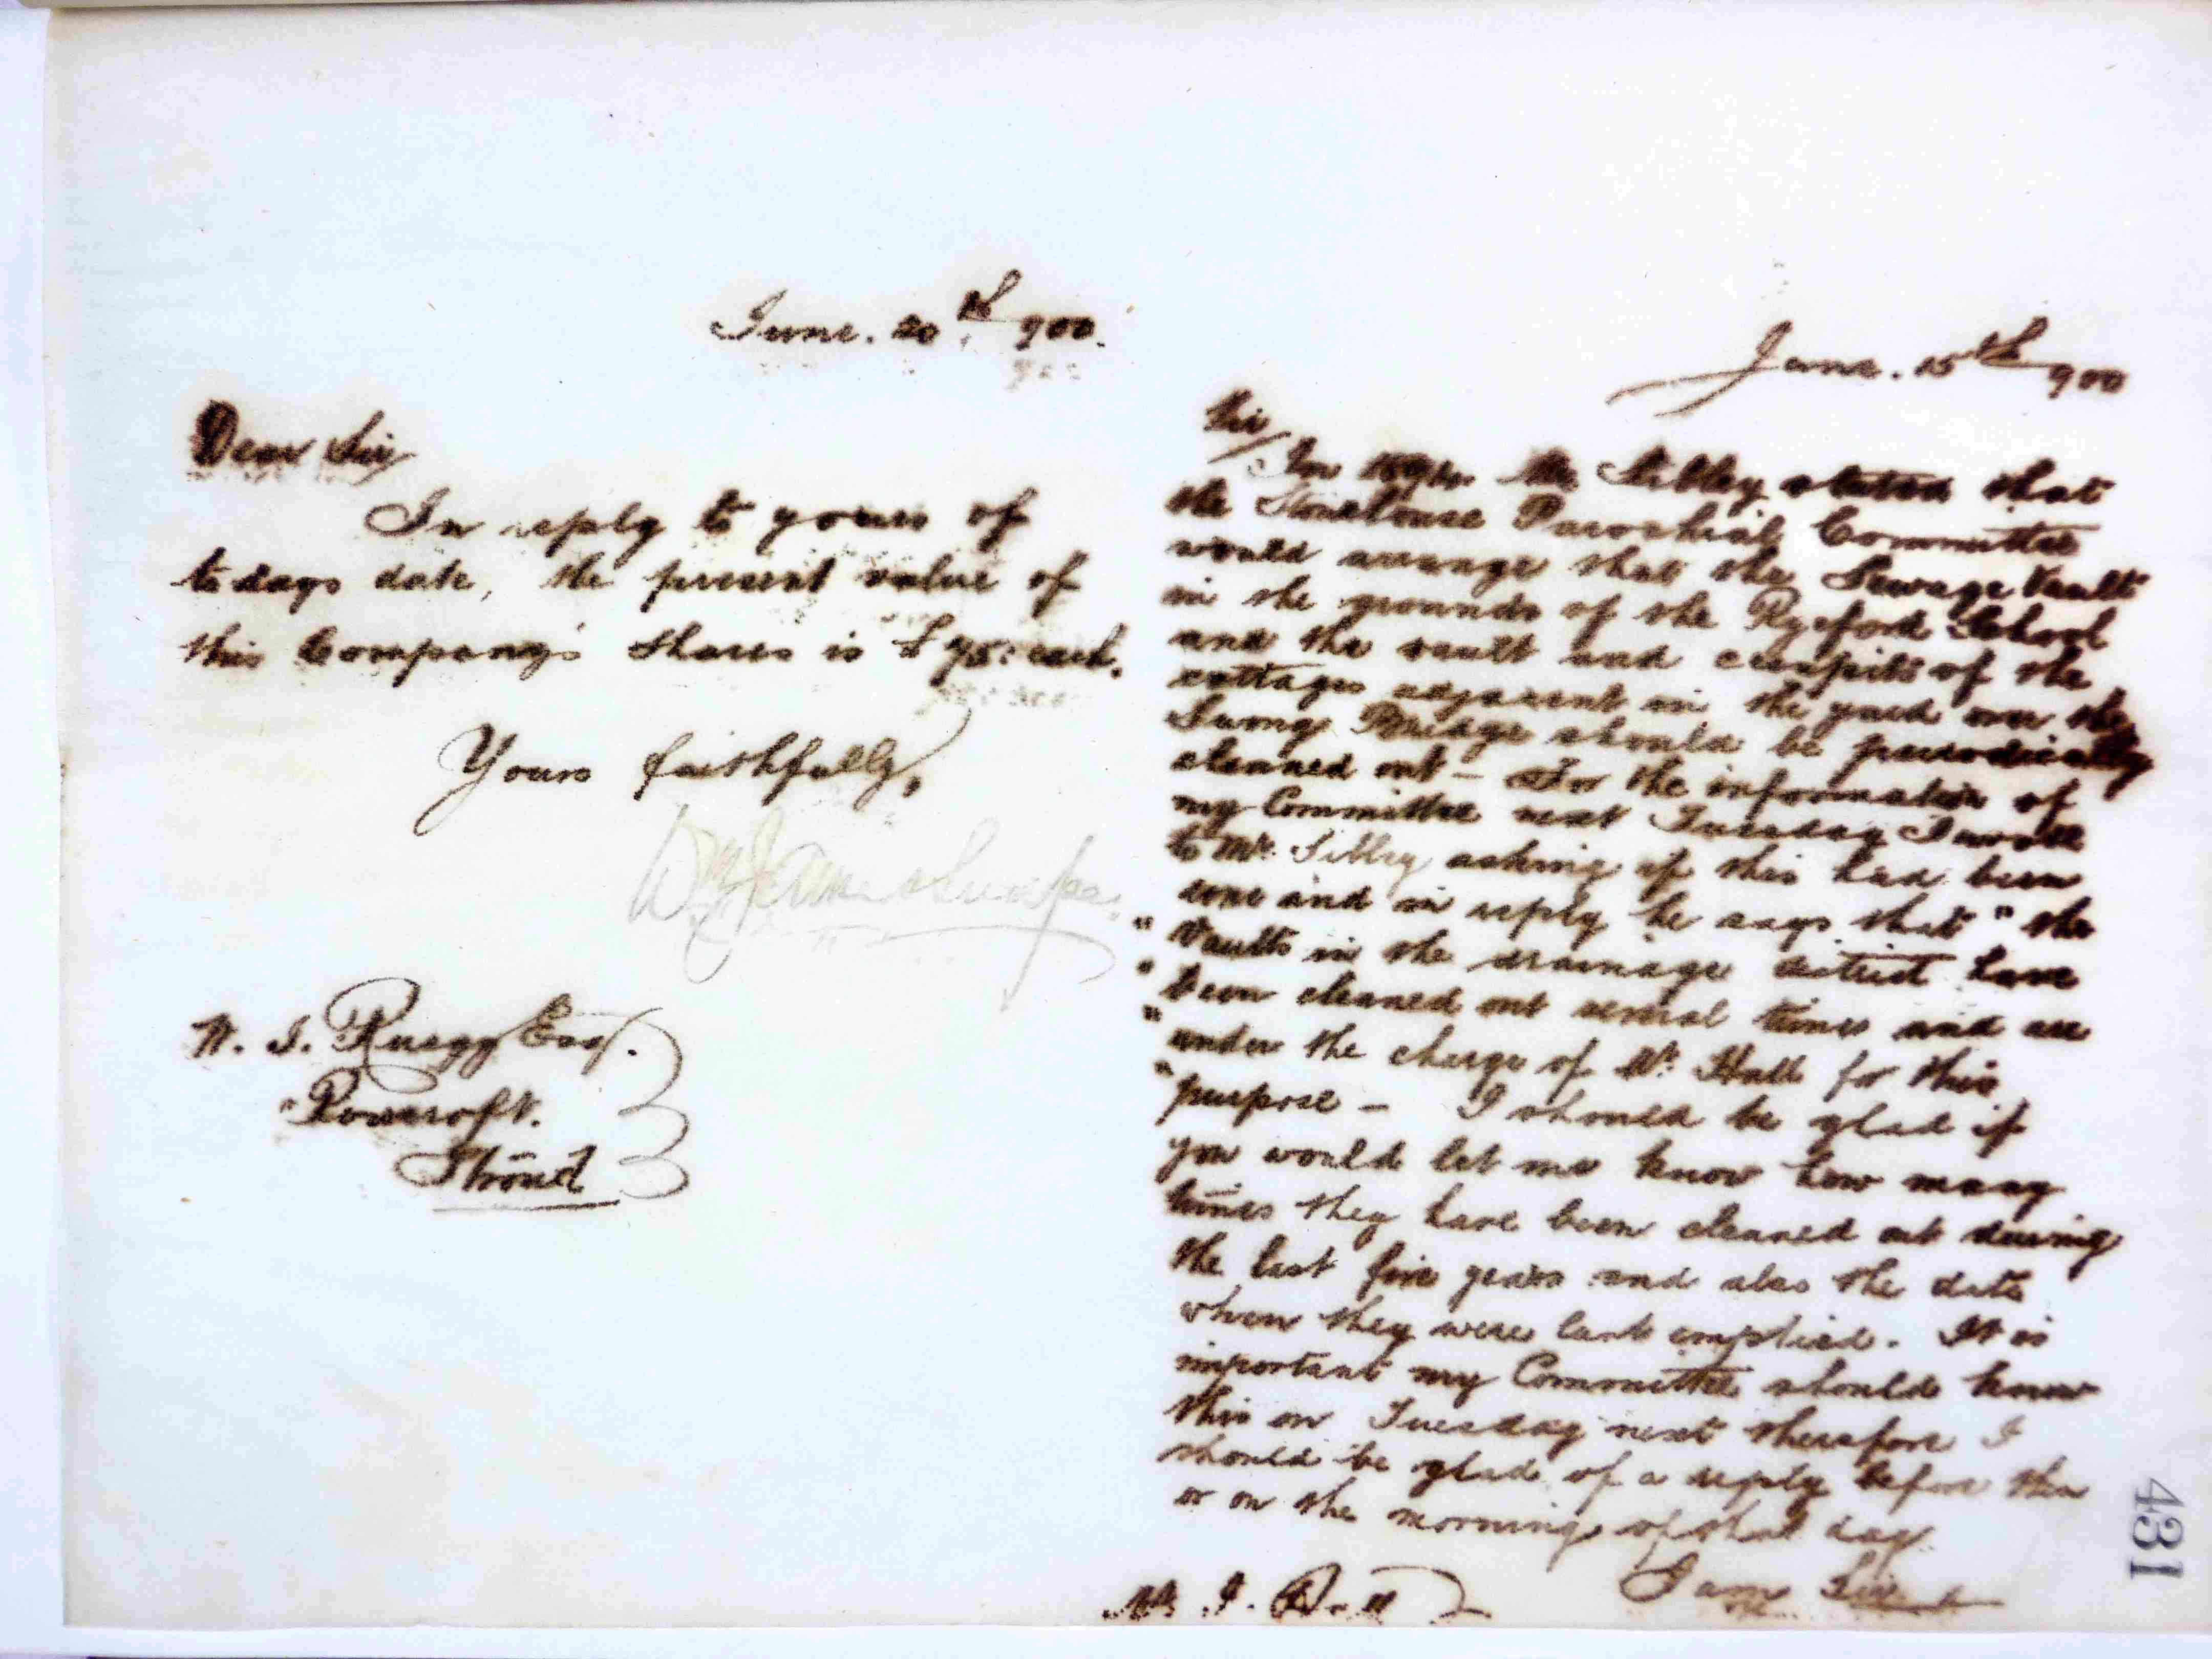 June. 20th 900.
Dear Sir
In reply to yours of
to days date, the present value of
this Company's Shares is £95: each.
Yours faithfully,
W. J. Snape
W. J. Ruegg Esq.
Rowcroft.
Stroud
June. 15th 900
Sir
In 1894. Mr Sibley stated that
the Stonehouse Parochial Committee
would arrange that the Sewage Vaults
in the grounds of the Ryeford School
and the vault and cesspits of the
cottages adjacent in the yard over the
Swing Bridge should be periodically
cleaned out – For the information of
my Committee next Tuesday I wrote
to Mr. Sibley asking if this had been
done and in reply he says that " the
" Vaults in the drainage district have
" been cleaned out several times and are
" under the charge of Mr. Hall for this
" purpose – I should be glad if
you would let me know how many
times they have been cleaned out during
the last five years and also the date
when they were last emptied. It is
important my Committee should know
this on Tuesday next therefore I
should be glad of a reply before then
or on the morning of that day.
I am Sir
Mr. J.
431